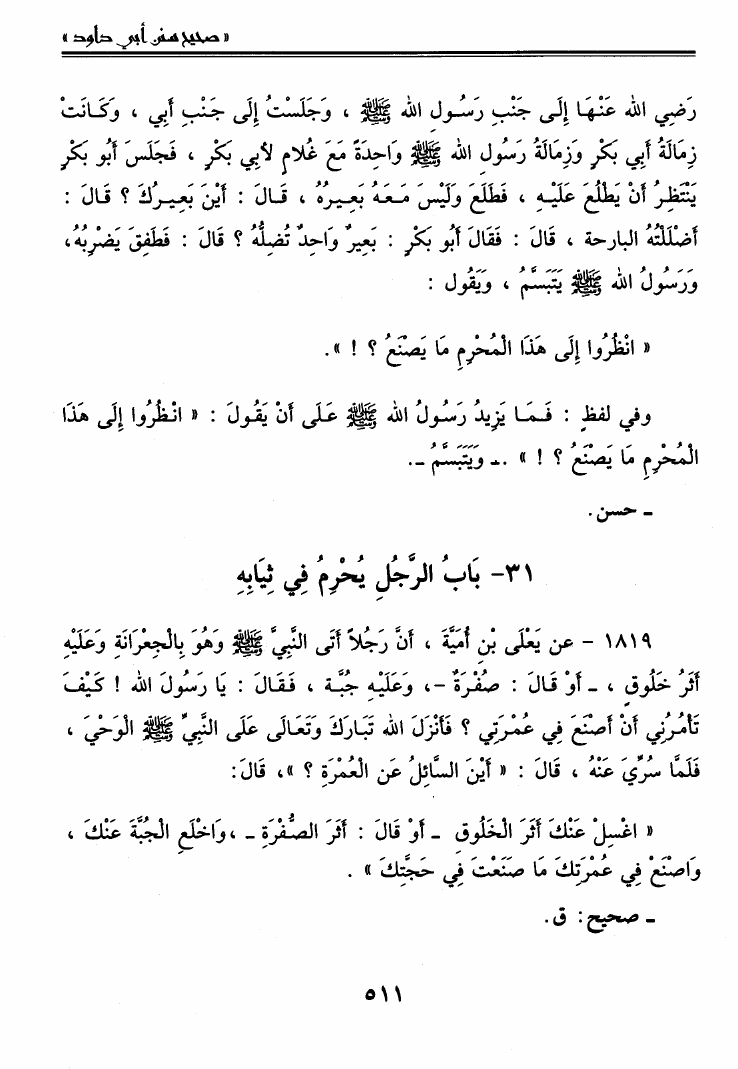 « صحيح سنن أبي داود »
رَضِي الله عَنْهَا إِلَى جَنْبِ رَسُولِ الله ﷺ ، وَجَلَسْتُ إِلَى جَنْبِ أَبِي ، وَكَانَتْ
زِمَالَةُ أَبِي بَكْرٍ وَزِمَالَةُ رَسُولِ الله ﷺ وَاحِدَةً مَعَ غُلَامٍ لأَبِي بَكْرٍ ، فَجَلَسَ أَبُو بَكْرٍ
يَنْتَظِرُ أَنْ يَطْلُعَ عَلَيْهِ ، فَطَلَعَ وَلَيْسَ مَعَهُ بَعِيرُهُ ، قَالَ : أَيْنَ بَعِيرُكَ ؟ قَالَ :
أَضْلَلْتُهُ البارحة ، قَالَ : فَقَالَ أَبُو بَكْرٍ : بَعِيرٌ وَاحِدٌ تُضِلُّهُ ؟ قَالَ : فَطَفِقَ يَضْرِبُهُ،
وَرَسُولُ الله ﷺ يَتَبَسَّمُ ، وَيَقُول :
« انْظُرُوا إِلَى هَذَا الْمُحْرِمِ مَا يَصْنَعُ ؟ ! ».
وفي لفظٍ : فَمَا يَزِيدُ رَسُولُ الله ﷺ عَلَى أَنْ يَقُولَ : « انْظُرُوا إِلَى هَذَا
الْمُحْرِمِ مَا يَصْنَعُ ؟ ! » .ـ وَيَتَبَسَّمُ ـ.
ـ حسن.
٣١- بَابُ الرَّجُلِ يُحْرِمُ فِي ثِيَابِهِ
١٨١٩ – عن يَعْلَى بْنِ أُمَيَّةَ ، أَنَّ رَجُلاً أَتَى النَّبِيَّ ﷺ وَهُوَ بِالْجِعْرَانَةِ وَعَلَيْهِ
أَثَرُ خَلُوقٍ ، ـ أَوْ قَالَ : صُفْرَةٌ –، وَعَلَيْهِ جُبَّة ، فَقَالَ : يَا رَسُولَ الله ! كَيْفَ
تَأْمُرُنِي أَنْ أَصْنَعَ فِي عُمْرَتِي ؟ فَأَنْزَلَ الله تَبَارَكَ وَتَعَالَى عَلَى النَّبِيِّ ﷺ الْوَحْيَ ،
فَلَمَّا سُرِّيَ عَنْهُ ، قَالَ : « أَيْنَ السَّائِلُ عَنِ الْعُمْرَةِ ؟ »، قَالَ:
« اغْسِلْ عَنْكَ أَثَرَ الْخَلُوقِ ـ أَوْ قَالَ : أَثَرَ الصُّفْرَةِ ـ ،وَاخْلَعِ الْجُبَّةَ عَنْكَ ،
وَاصْنَعْ فِي عُمْرَتِكَ مَا صَنَعْتَ فِي حَجَّتِكَ » .
ـ صحيح: ق.
٥١١